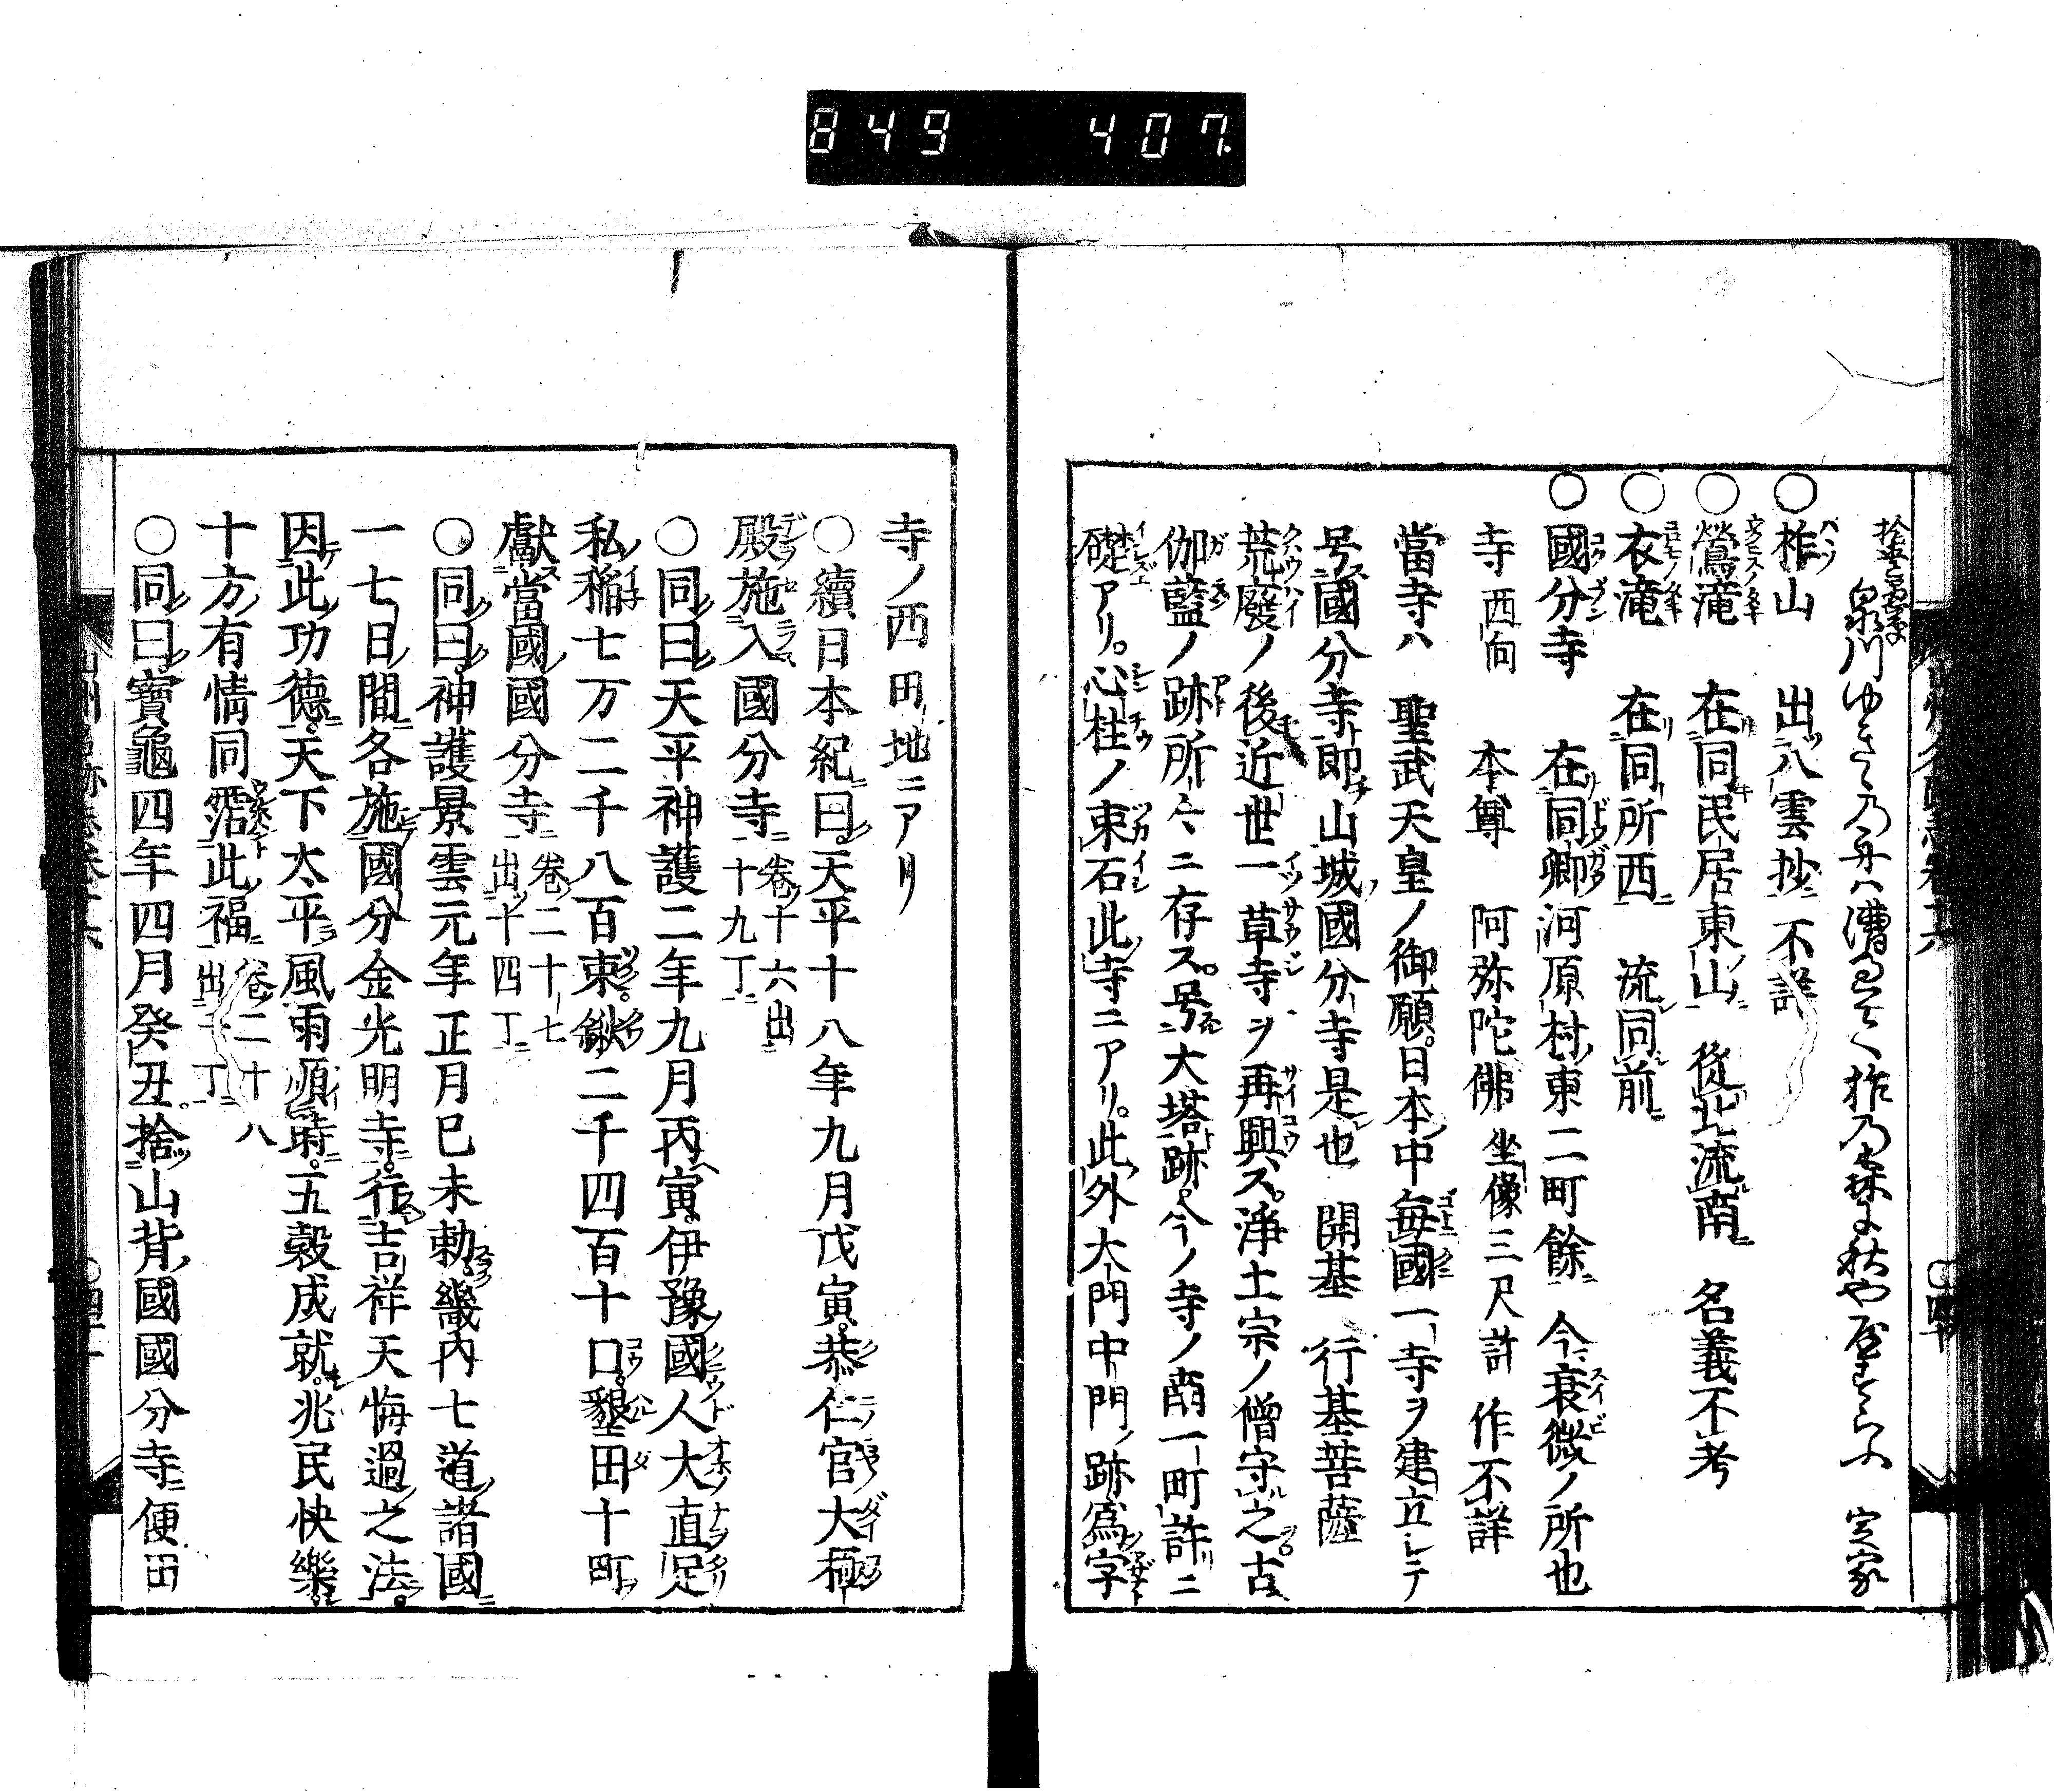 849 407
泉川ゆきゝの舟は漕過て柞の森に秋や昼すらふ 定家
○柞山 出八雲抄不詳
○鶯滝 在同民居東山 從北流南 名義不考
○衣滝 在同所西 流同前
○國分寺 在同郷河原村東二町餘 今衰微ノ所也
寺西向 本尊 阿弥陀佛 坐像三尺許 作不詳
當寺ハ 聖武天皇ノ御願。日本中毎國一寺ヲ建立シテ
号國分寺即山城國分寺是也 開基 行基菩薩
荒廢ノ後近世一草寺ヲ再興ス。浄土宗ノ僧守之。古
伽藍ノ跡所々ニ存ス。号大塔跡。今ノ寺ノ南一町許ニ
礎アリ。心柱ノ束石此寺ニアリ。此外大門中門ノ跡爲字
寺ノ西田地ニアリ
○續日本紀曰。天平十八年九月戊寅。恭仁宮大極
殿施入國分寺 卷十六出十九丁
○同曰天平神護二年九月丙寅。伊豫國人大直足
私稲七万二千八百束。鍬二千四百十口。墾田十町
獻當國國分寺 卷二十七出十四丁
○同曰。神護景雲元年正月己未勅。畿內七道諸國
一七日間各施國分金光明寺。行吉祥天悔過之法。
因此功德。天下太平風雨順時。五穀成就。兆民快樂。
十方有情同霑此福 卷二十八出一丁
○同曰。寶龜四年四月癸丑。捨山背國國分寺便田